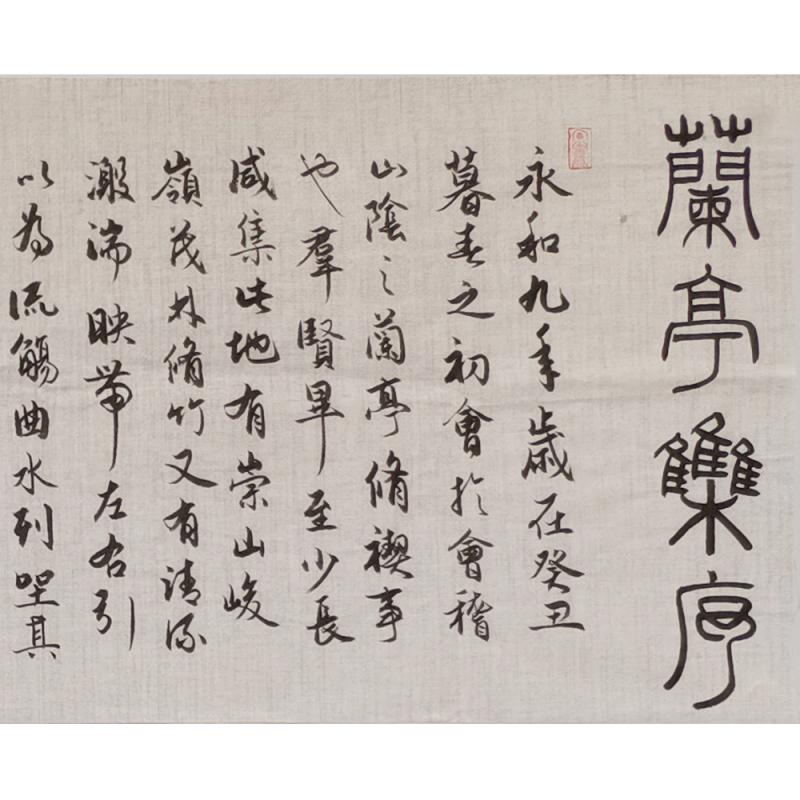 蘭亭集序
永和九年歲在癸丑
暮春之初會於會稽
山陰之蘭亭脩禊事
也羣賢畢至少長
咸集此地有崇山峻
嶺茂林脩竹又有清流
激湍映帶左右引
以為流觴曲水列坐其